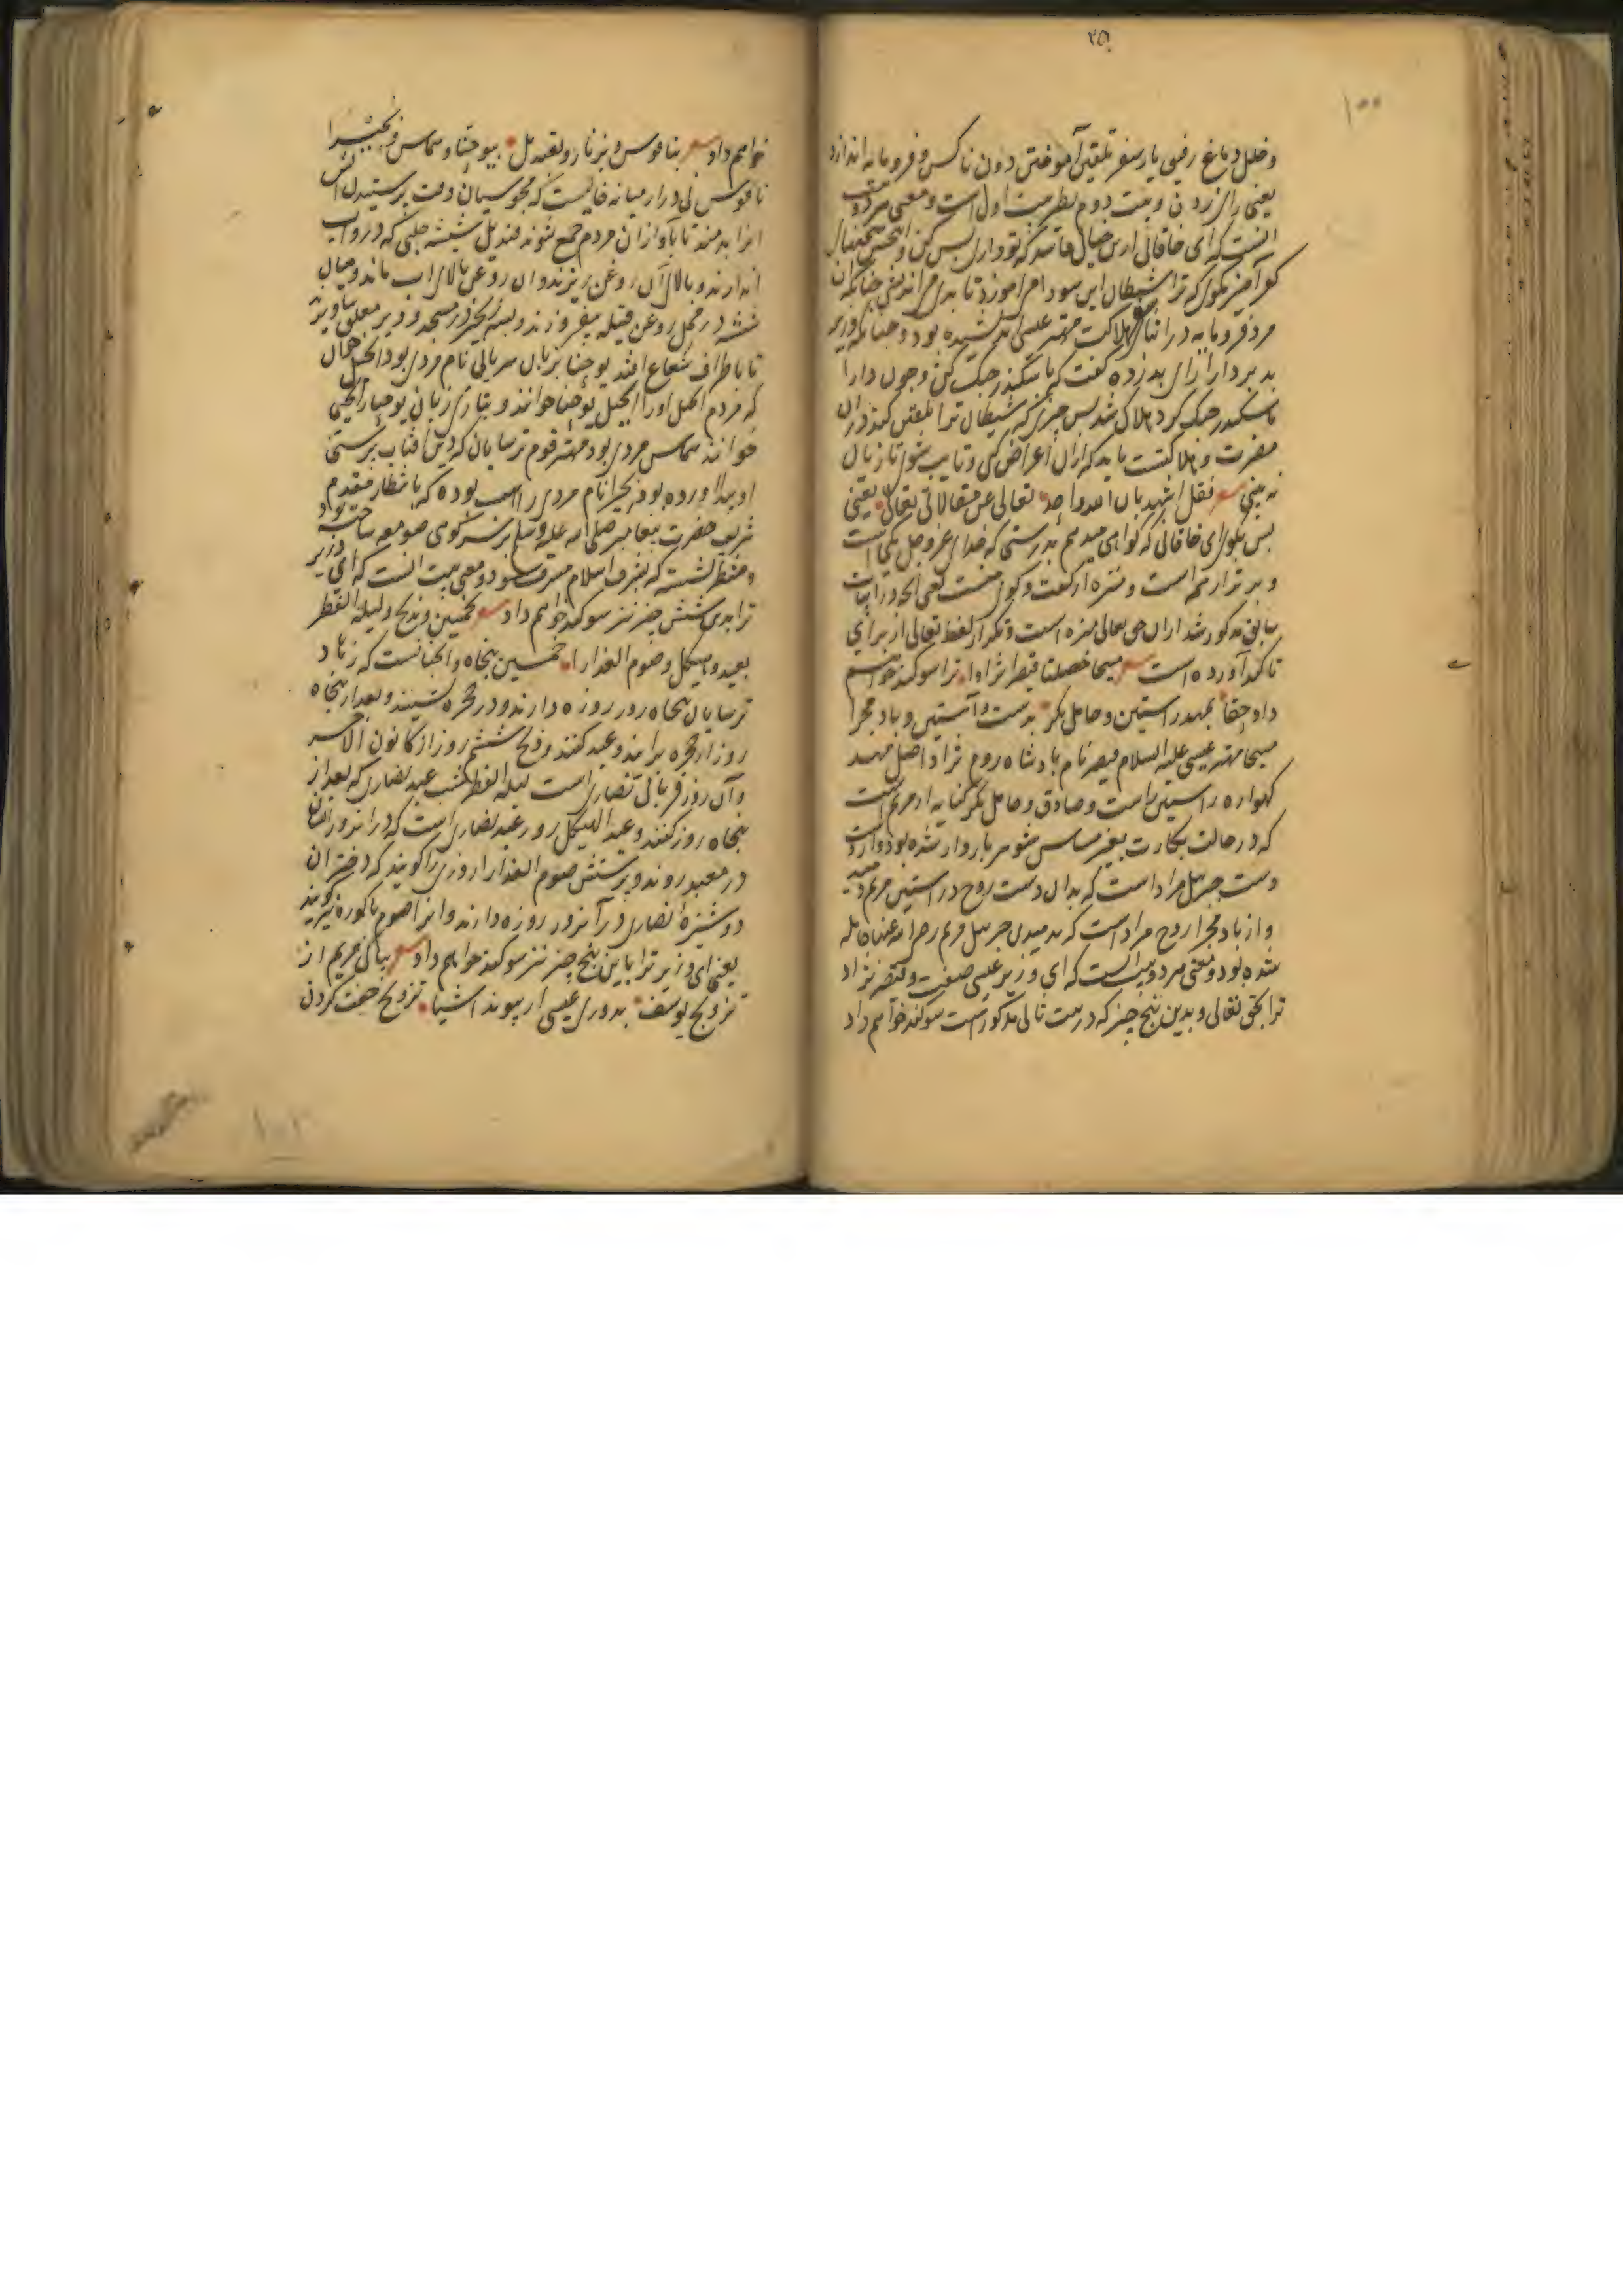 ۲۵
۱۰۰
و خلل دماغ رفیق یار سفر تلقین آموختن دون ناکس و فرومایه اندازد
یعنی رای زدن و بیت دوم نظر بیت اول است و معنی هر دو بیت
آنست که ای خاقانی ازین خیال فاسد که تو داری بس کن و
کفرآمیز مگوی که ترا شیطان این سودا می‌آموزد تا بدی می‌اندیشی چنانکه آن
مرد فرومایه در هلاکت مهتر عیسی اندیشیده بود و چنانکه وزیر
بد بر دارا رای بد زده گفت که با سکندر جنگ کن و چون دارا
با سکندر جنگ کرد هلاک شد پس چیزی که شیطان ترا تلقین کند در آن
مضرت و هلاکتست باید که ازان اعراض کنی و تایب شوی تا زیان
نه بینی شعر فقل اشهد بان الله واحد تعالی عن مقالاتی تعالی یعنی
پس بگو ای خاقانی که گواهی میدهم بدرستی که خدای عز و جل یکی است
و برتر از همه است و منزه از گفت و گوی منست یعنی آنچه در ابیات
سابق مذکور شد ازان حق تعالی منزه است و تکرار لفظ تعالی از برای
تاکید آورده است شعر مسیحا خصلتا قیصر نژادا ترا سوگند خواهم
داد حقا بمهد راستین و حامل بکر بدست و آستین و باد مجرا
مسیحا مهتر عیسی علیه السلام قیصر نام بادشاه روم نژاد اصل مهد
گهواره راستین راست و صادق و حامل بکر کنایه از مریم است
که در حالت بکارت بغیر مساس شوهر باردار شده بود و از دست
دست جبرئیل مراد است که بدان دست روح در آستین مریم دمید
و از باد مجرا روح مراد است که بدمیدن جبرئیل مریم رضی الله عنها حامله
شده بود و معنی هر دو بیت آنست که ای وزیر عیسی صفت و قیصر نژاد
ترا بحق تعالی و بدین پنج چیز که در بیت ثانی مذکور است سوگند خواهم داد
خواهم داد شعر بناقوس و بزنار و بقندیل بیوحنا و شماس و بحیرا
ناقوس نی دراز میانه خالیست که مجوسیان وقت پرستیدن آتش
آنرا بدمند تا بآواز آن مردم جمع شوند قندیل شیشه حلبی که درو آب
اندازند و بالای آن روغن ریزند و آن روغن بالای آب ماند و میان
شیشه در محل روغن فتیله میفروزند و بسه زنجیر در مسجد و دیر معلق بیاویزند
تا باطراف شعاع افتد یوحنا بزبان سریانی نام مردی بود انجیل خوان
که مردم انجیل او را انجیل یوحنا خوانند و بتازی زبان یوحنا را یحیی
خوانند شماس مردی بود مهتر قوم ترسایان که دین آفتاب پرستی
او پیدا آورده بود بحیرا نام مردی راهب بوده که بانتظار مقدم
شریف حضرت پیغامبر صلی الله علیه و سلم بر سر کوهی صومعه ساخته بود
و منتظر نشسته که بشرف اسلام مشرف شود و معنی بیت آنست که ای وزیر
ترا بدین شش چیز نیز سوگند خواهم داد شعر بخمسین و بذبح و لیلة الفطر
بعید و هیکل و صوم العذارا خمسین پنجاه و آنچنانست که زهاد
ترسایان پنجاه روز روزه دارند و در حجره نشینند و بعد از پنجاه
روز از حجره برآیند و عید کنند و ذبح ششم روز از کانون الآخر
و آن روز قربانی نصاری است لیلة الفطر شب عید نصاری که بعد از
پنجاه روز کنند و عید الهیکل روز عید نصاری است که در آن روز ایشان
در معبد روند و پرستش صوم العذارا روزی را گویند که دختران
دوشیزهٔ نصاری در آن روز روزه دارند و آنرا صوم باکوره نیز گویند
یعنی ای وزیر ترا باین پنج چیز نیز سوگند خواهم داد شعر بپاکی مریم از
تزویج یوسف بدوری عیسی از پیوند اشیا تزویج جفت کردن